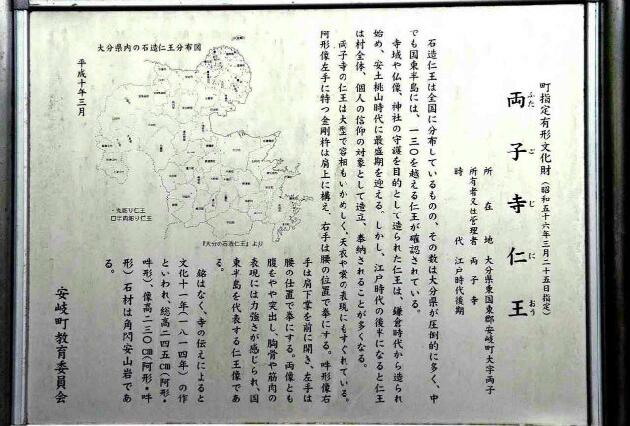 町指定有形文化財(昭和五十六年三月二十五日指定)
両子寺仁王
ふたごじにおう
所在地 大分県東国東郡安岐町大字両子
所有者又は管理者 両子寺
時代 江戸時代後期
石造仁王は全国に分布しているものの、その数は大分県が圧倒的に多く、中
でも国東半島には、一三〇を越える仁王が確認されている。
寺域や仏像、神社の守護を目的として造られた仁王は、鎌倉時代から造られ
始め、安土桃山時代に最盛期を迎える。しかし、江戸時代の後半になると仁王
は村全体、個人の信仰の対象として造立、奉納されることが多くなる。
両子寺の仁王は大型で容相もいかめしく、天衣や裳の表現にもすぐれている。
阿形像左手に持つ金剛杵は肩上に構え、右手は腰の位置で拳にする。吽形像右
手は肩下掌を前に開き、左手は
腰の位置で拳にする。両像とも
腹をやや突出し、胸骨や筋肉の
表現には力強さが感じられ、国
東半島を代表する仁王像であ
る。
銘はなく、寺の伝えによると
文化十一年(一八一四年)の作
といわれ、総高二四五㎝(阿形・
吽形)、像高二三〇㎝(阿形・吽
形)石材は角閃安山岩であ
る。
安岐町教育委員会
大分県内の石造仁王分布図
・丸彫り仁王
□半肉彫り仁王
『大分の石造仁王』より
平成十年三月